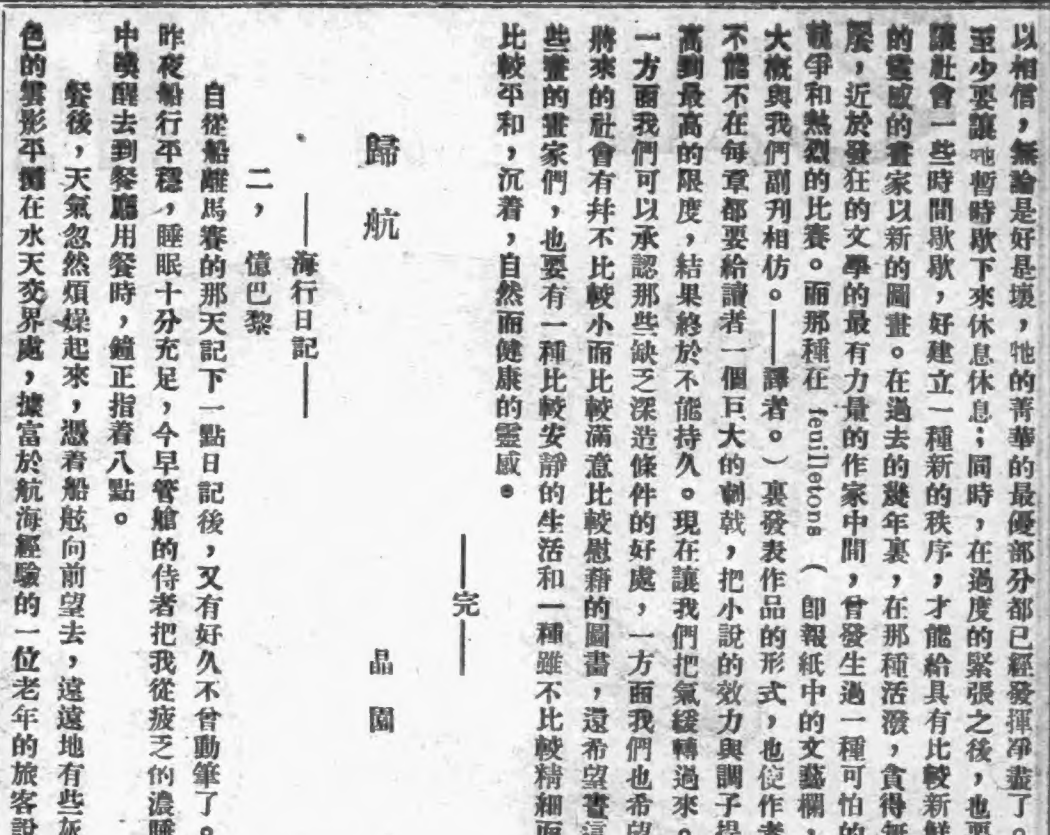 以相信，無論是好是壞，牠的菁華的最優部分都已經發揮凈盡了。
至少要讓牠暫時歇下來休息休息；同時，在過度的緊張之後，也
讓社會一些時間歇歇，好建立一種新的秩序，才能給具有比較新鮮
的靈感的畫家以新的圖畫。在過去的幾年裏，在那種活潑，貪得無
厭，近於發狂的文學的最有力量的作家中間，曾發生過一種可怕的
競爭和熱烈的比賽。而那種在 feuilletons （卽報紙中的文藝欄，
大概與我們副刊相仿。——譯者。）裏發表作品的形式，也使作者
不能不在每章都要給讀者一個巨大的刺戟，把小說的效力與調子提
高到最高的限度，結果終於不能持久。現在讓我們把氣緩轉過來。
一方面我們可以承認那些缺乏深造條件的好處，一方面我們也希望
將來的社會有幷不比較小而比較滿意比較慰藉的圖畫，還希望畫這
些畫的畫家們，也要有一種比較安靜的生活和一種雖不比較精細而
比較平和，沉着，自然而健康的靈感。
——完——
歸航 晶園
——海行日記——
二，憶巴黎
自從船離馬賽的那天記下一點日記後，又有好久不曾動筆了。
昨夜船行平穩，睡眠十分充足，今早管艙的侍者把我從疲乏的濃睡
中喚醒去到餐廳用餐時，鐘正指着八點。
餐後，天氣忽然煩燥起來，憑着船舷向前望去，遠遠地有些灰
色的雲影平懶在水天交界處，據富於航海經驗的一位老年的旅客說